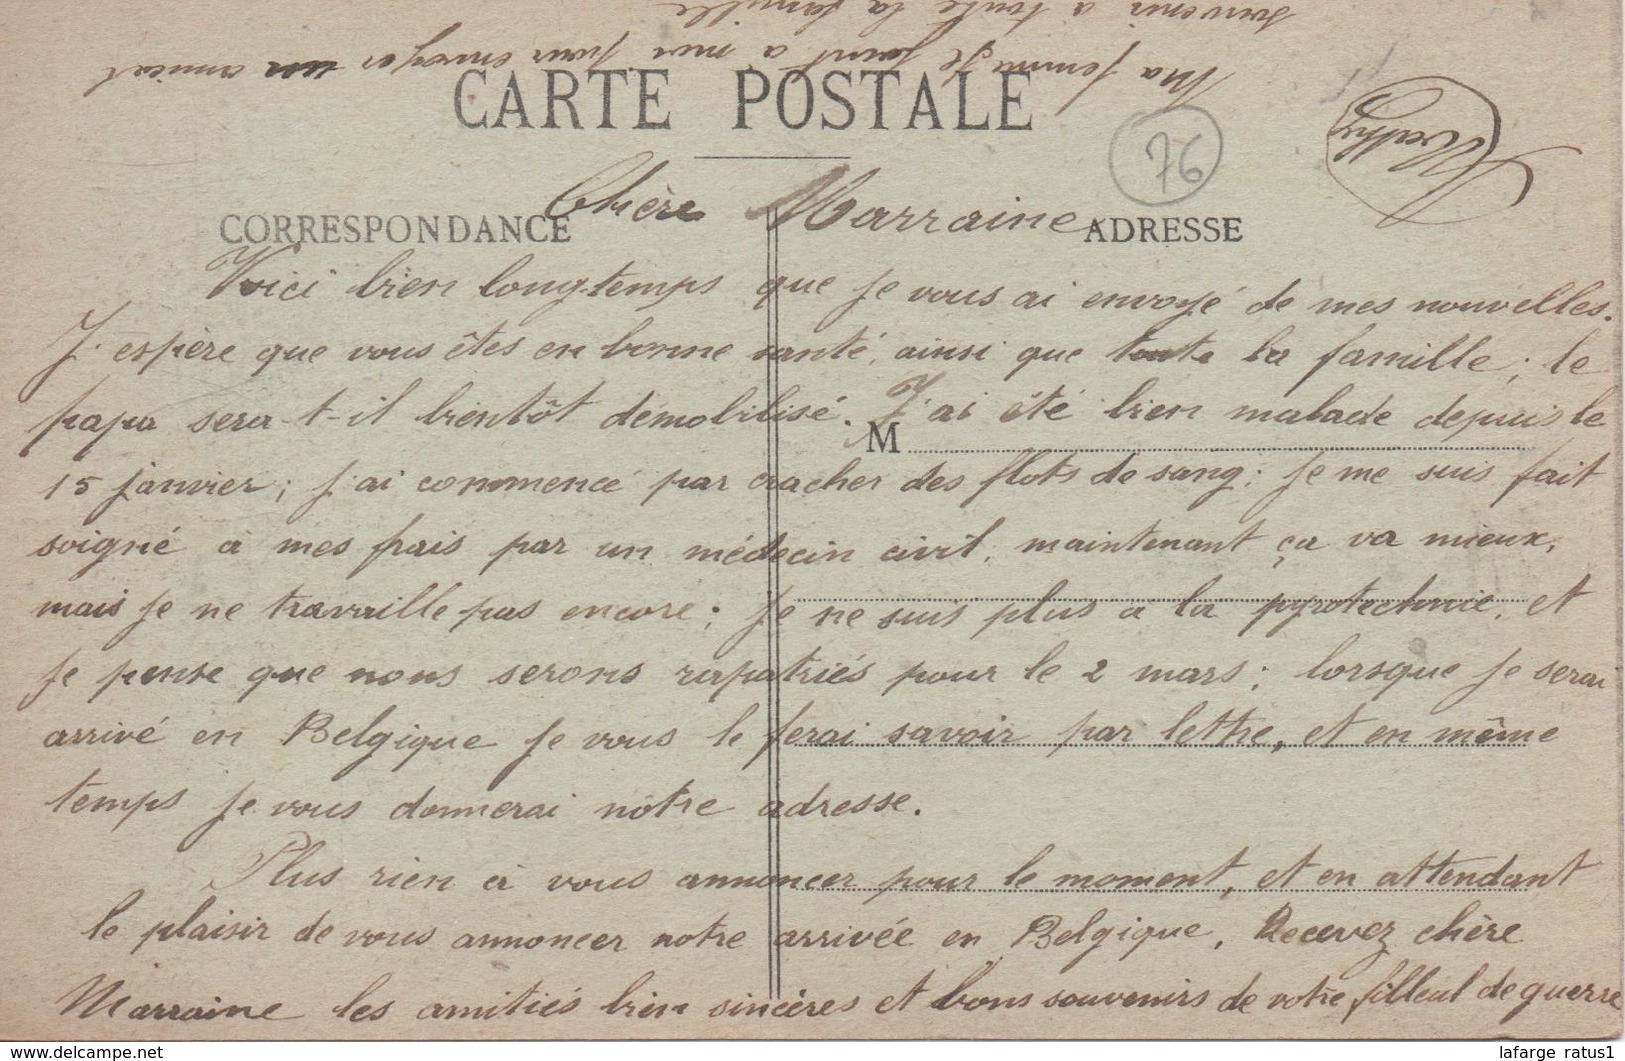 CARTE POSTALE
76
CORRESPONDANCE
ADRESSE
Chère Marraine
Voici bien longtemps que je vous ai envoyé de mes nouvelles.
J'espère que vous êtes en bonne santé, ainsi que toute la famille; le
papa sera-t-il bientôt démobilisé. J'ai été bien malade depuis le
M
15 janvier; j'ai commencé par cracher des flots de sang; je me suis fait
soigné à mes frais par un médecin civil, maintenant ça va mieux,
mais je ne travaille pas encore; je ne suis plus à la pyrotechnie, et
je pense que nous serons rapatriés pour le 2 mars; lorsque je serai
arrivé en Belgique je vous le ferai savoir par lettre, et en même
temps je vous donnerai nôtre adresse.
Plus rien à vous annoncer pour le moment, et en attendant
le plaisir de vous annoncer notre arrivée en Belgique, Recevez chère
Marraine les amitiés bien sincères et bons souvenirs de votre filleul de guerre
Ma femme se joint à moi pour envoyer un amical
souvenir à toute la famille
lafarge ratus1
www.delcampe.net